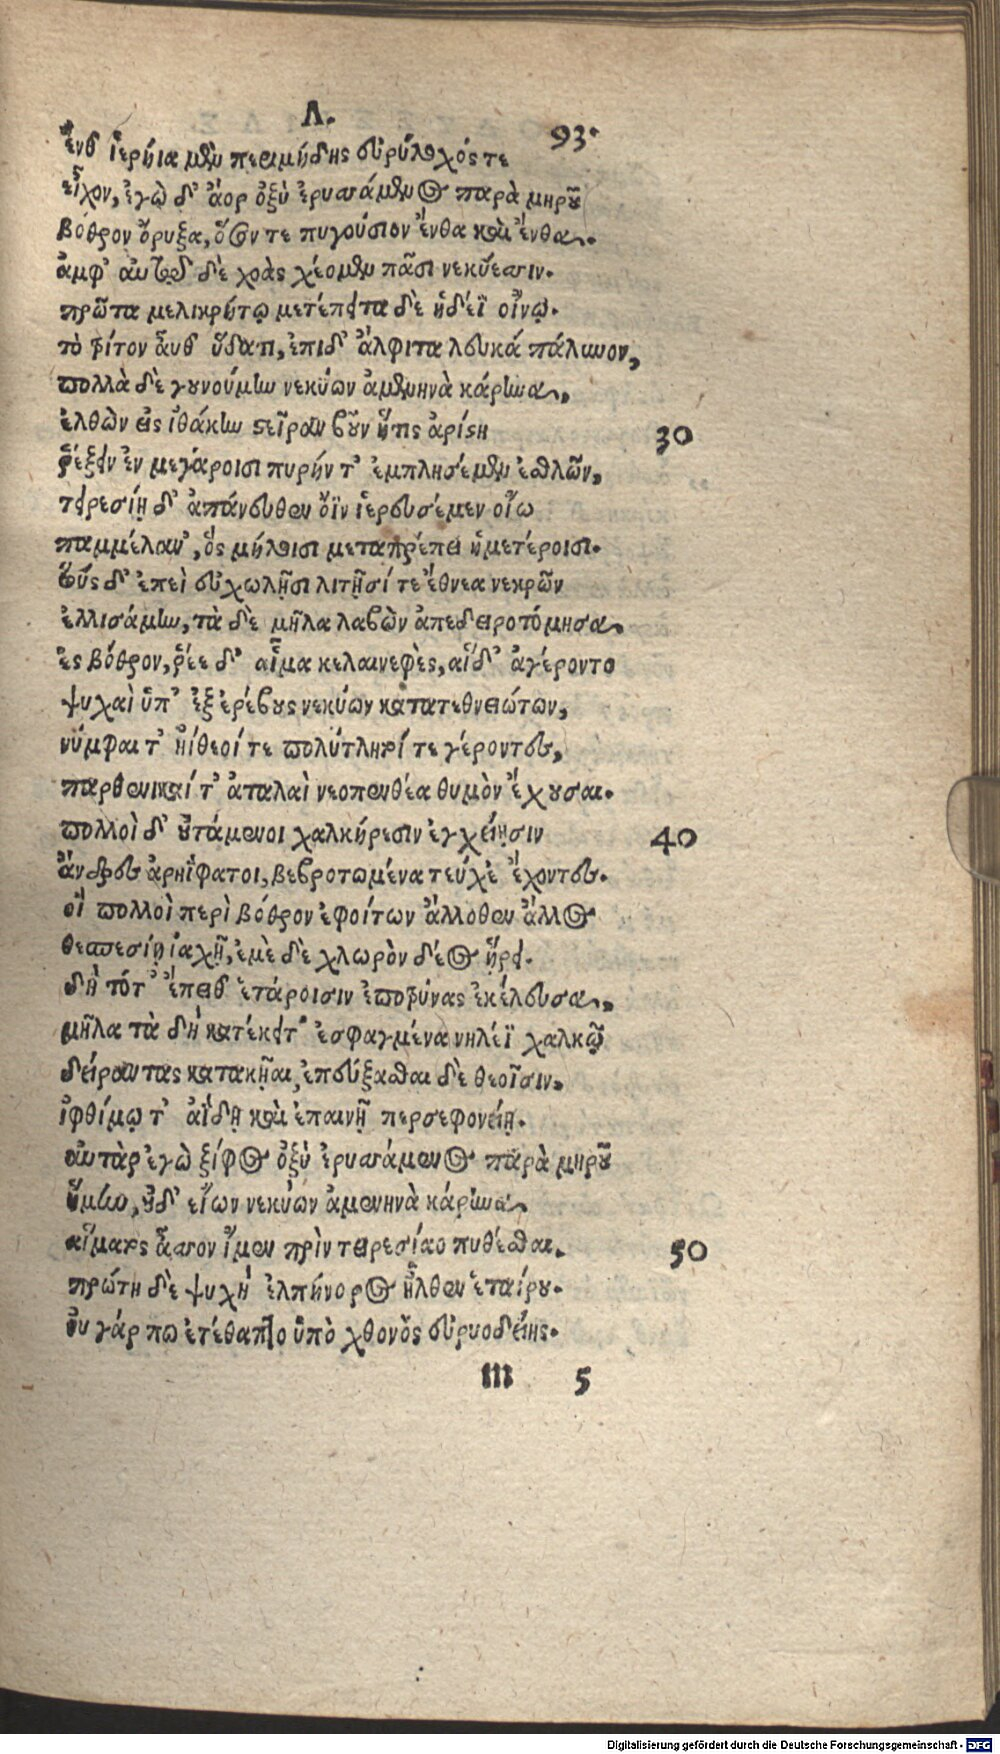 Λ. 93.
ἔνθ' ἱερήϊα μὲν περιμήδης εὐρύλοχός τε
εἶχον, ἐγὼ δ' ἄορ ὀξὺ ἐρυσσάμενος παρὰ μηροῦ
βόθρον ὄρυξα, ὅσον τε πυγούσιον ἔνθα καὶ ἔνθα.
ἀμφ' αὐτῷ δὲ χοὰς χέομεν πᾶσι νεκύεσσιν.
πρῶτα μελικρήτῳ μετέπειτα δὲ ἡδέϊ οἴνῳ.
τὸ τρίτον αὖθ' ὕδατι, ἐπὶ δ' ἄλφιτα λευκά πάλιωον,
πολλὰ δὲ γουνούμην νεκύων ἀμενηνὰ κάρηνα,
ἐλθὼν εἰς ἰθάκην στεῖραν βοῦν ἥτις ἀρίστη 30
ῥέξειν ἐν μεγάροισι πυρήν τ' ἐμπλησέμεν ἐσθλῶν,
τειρεσίῃ δ' ἀπάνευθεν ὄϊν ἱερευσέμεν οἴῳ
παμμέλαν', ὃς μήλοισι μεταπρέπει ἡμετέροισι.
τοὺς δ' ἐπεὶ εὐχωλῇσι λιτῇσί τε ἔθνεα νεκρῶν
ἐλλισάμην, τὰ δὲ μῆλα λαβὼν ἀπεδειροτόμησα,
ἐς βόθρον, ῥέε δ' αἷμα κελαινεφὲς, αἵδ' ἀγέροντο
ψυχαὶ ὑπ' ἐξ ἐρέβους νεκύων κατατεθνειώτων,
νύμφαι τ' ἠίθεοί τε πολύτλητοί τε γέροντες,
παρθενικαί τ' ἀταλαὶ νεοπενθέα θυμὸν ἔχουσαι.
πολλοὶ δ' οὐτάμενοι χαλκήρεσιν ἐγχείῃσιν 40
ἄνδρες ἀρηΐφατοι, βεβροτωμένα τεύχε' ἔχοντες.
οἳ πολλοὶ περὶ βόθρον ἐφοίτων ἄλλοθεν ἄλλος
θεσπεσίῃ ἰαχῇ, ἐμὲ δὲ χλωρὸν δέος ᾕρει.
δὴ τότ' ἔπειθ' ἑτάροισιν ἐποτρύνας ἐκέλευσα,
μῆλα τὰ δὴ κατέκειτ' ἐσφαγμένα νηλέϊ χαλκῷ
δείραντας κατακῆαι, ἐπεύξασθαι δὲ θεοῖσιν,
ἰφθίμῳ τ' ἀΐδῃ καὶ ἐπαινῇ περσεφονείῃ.
αὐτὰρ ἐγὼ ξίφος ὀξὺ ἐρυσσάμενος παρὰ μηροῦ
ἥμην, οὐδ' εἴων νεκύων ἀμενηνὰ κάρηνα
αἵματος ἆσσον ἴμεν πρὶν τειρεσίαο πυθέσθαι. 50
πρώτη δὲ ψυχὴ ἐλπήνορος ἦλθεν ἑταίρου.
οὐ γάρ πω ἐτέθαπτο ὑπὸ χθονὸς εὐρυοδείης.
m 5
Digitalisierung gefördert durch die Deutsche Forschungsgemeinschaft - DFG